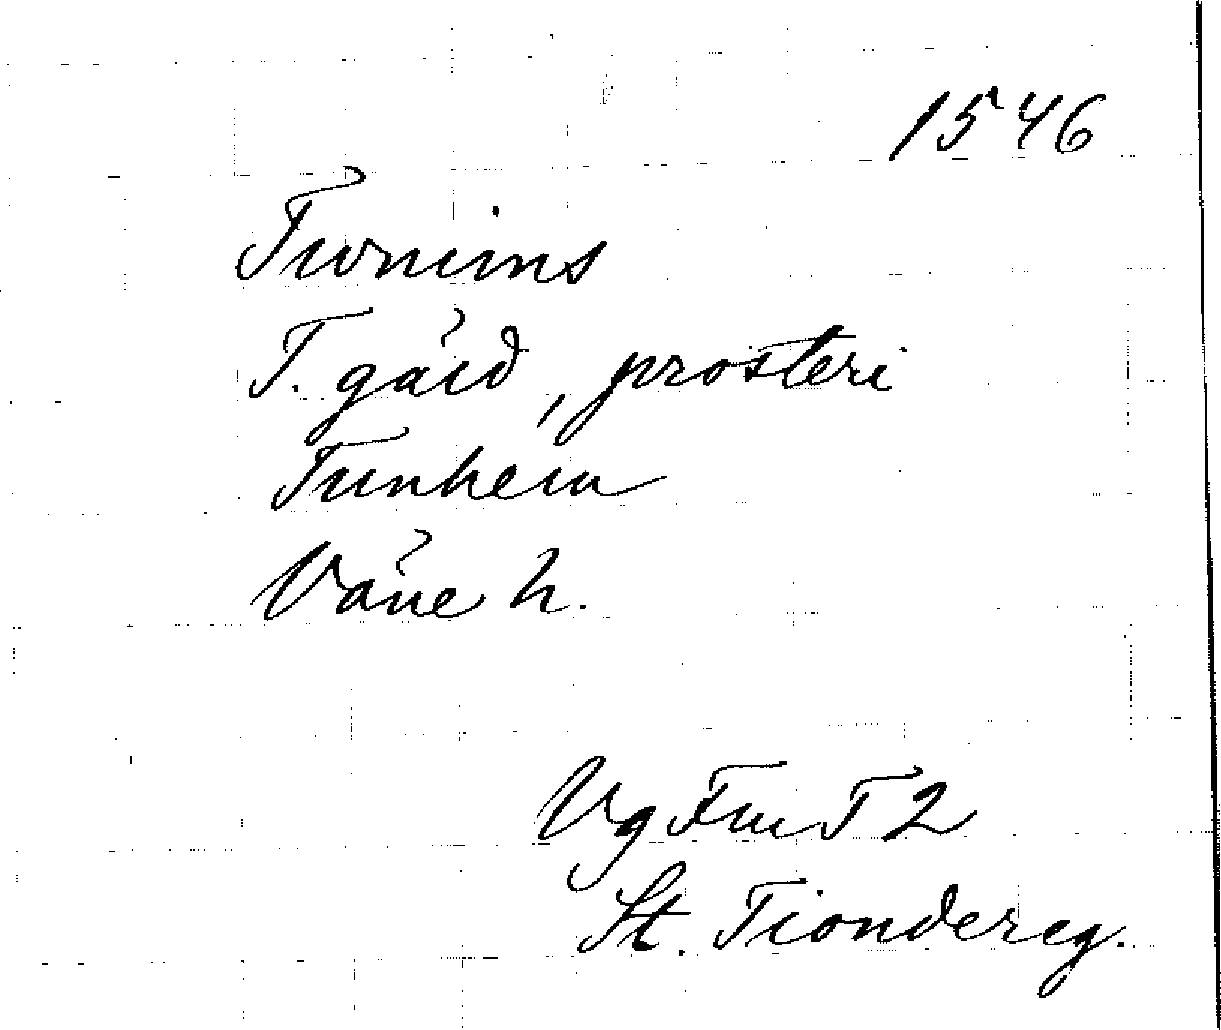 1546
Twnims
T. gård, prosteri
Tunhem
Våne h.
Vg Fm T 2
St. Tiondereg.